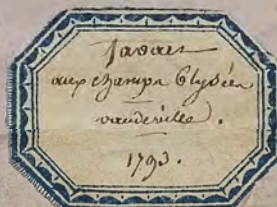 Favart
aux champs Elysées
vaudeville.
1793.